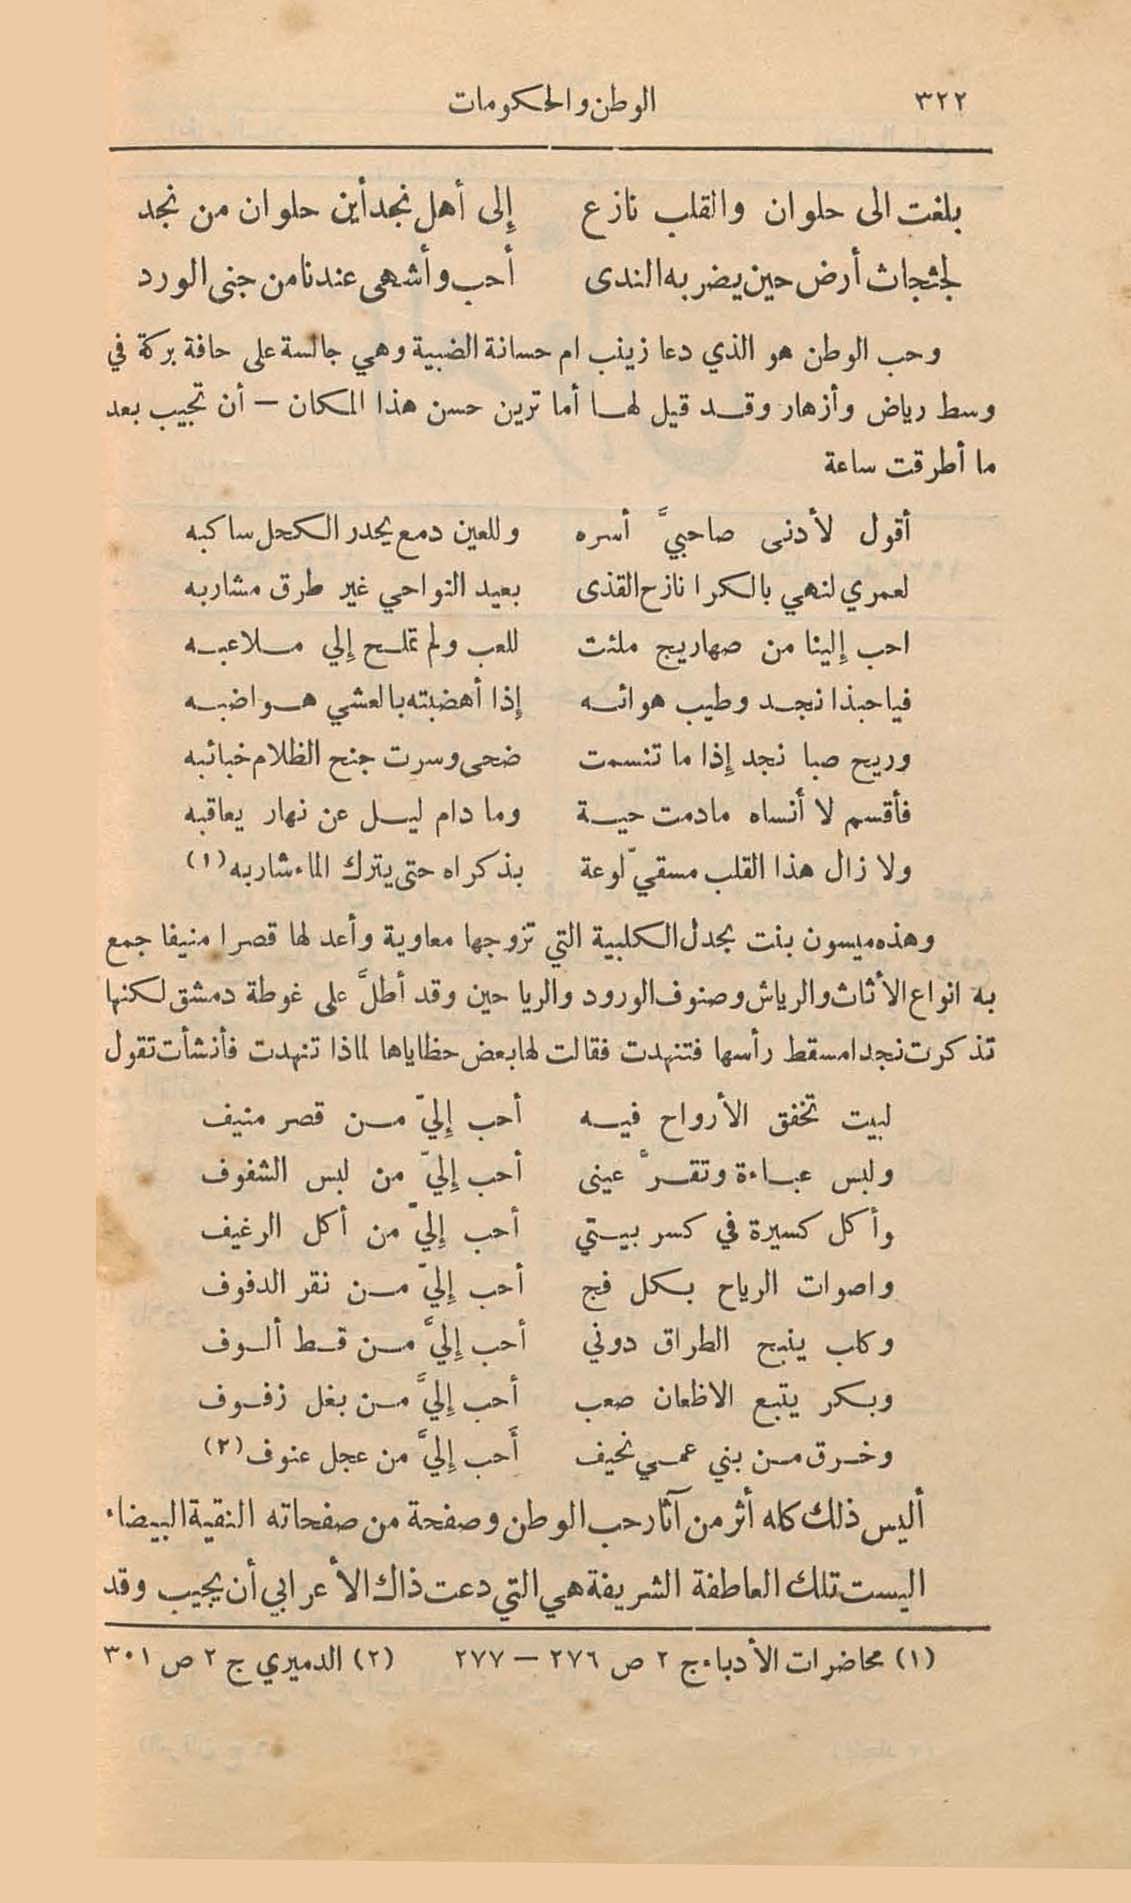 ٣٢٢ الوطن والحكومات
بلغت الى حلوان والقلب نازع إلى أهل نجد أين حلوان من نجد
لجثجاث أرض حين يضربه الندى أحب وأشهى عندنا من جنى الورد
وحب الوطن هو الذي دعا زينب ام حسانة الضبية وهي جالسة على حافة بركة في
وسط رياض وأزهار وقد قيل لها أما ترين حسن هذا المكان – أن تجيب بعد
ما أطرقت ساعة
أقول لأدنى صاحبيَّ أسره وللعين دمع يحدر الكحل ساكبه
لعمري لنهي بالكرا نازح القذى بعيد النواحي غير طرق مشاربه
احب إلينا من صهاريج ملئت للعب ولم تملح إلي ملاعبه
فياحبذا نجد وطيب هوائه إذا أهضبته بالعشي هواضبه
وريح صبا نجد إذا ما تنسمت ضحى وسرت جنح الظلام خبائبه
فأقسم لا أنساه مادمت حية وما دام ليل عن نهار يعاقبه
ولا زال هذا القلب مسقيّ لوعة بذكراه حتى يترك الماء شاربه (١)
وهذه ميسون بنت بجدل الكلبية التي تزوجها معاوية وأعد لها قصرا منيفا جمع
به انواع الأثاث والرياش وصنوف الورود والرياحين وقد أطلَّ على غوطة دمشق لكنها
تذكرت نجدا مسقط رأسها فتنهدت فقالت لها بعض حظاياها لماذا تنهدت فأنشأت تقول
لبيت تخفق الأرواح فيه أحب إليّ من قصر منيف
ولبس عباءة وتقرَّ عينى أحب إليّ من لبس الشفوف
وأكل كسيرة في كسر بيتي أحب إليّ من أكل الرغيف
واصوات الرياح بكل فج أحب إليّ من نقر الدفوف
وكلب ينبح الطراق دوني أحب إليَّ من قط ألوف
وبكر يتبع الاظعان صعب أحب إليَّ من بغل زفوف
وخرق من بني عمي نحيف أَحب إليَّ من عجل عنوف (٢)
أليس ذلك كله أثر من آثار حب الوطن وصفحة من صفحاته النقية البيضاء
اليست تلك العاطفة الشريفة هي التي دعت ذاك الأعرابي أن يجيب وقد
(١) محاضرات الأدباء ج ٢ ص ٢٧٦ – ٢٧٧ (٢) الدميري ج ٢ ص ٣٠١